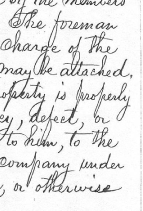 of the members
The foreman
charge of the
may be attached,
operty is properly
cy, defect, or
to him, to the
company under
, or otherwise